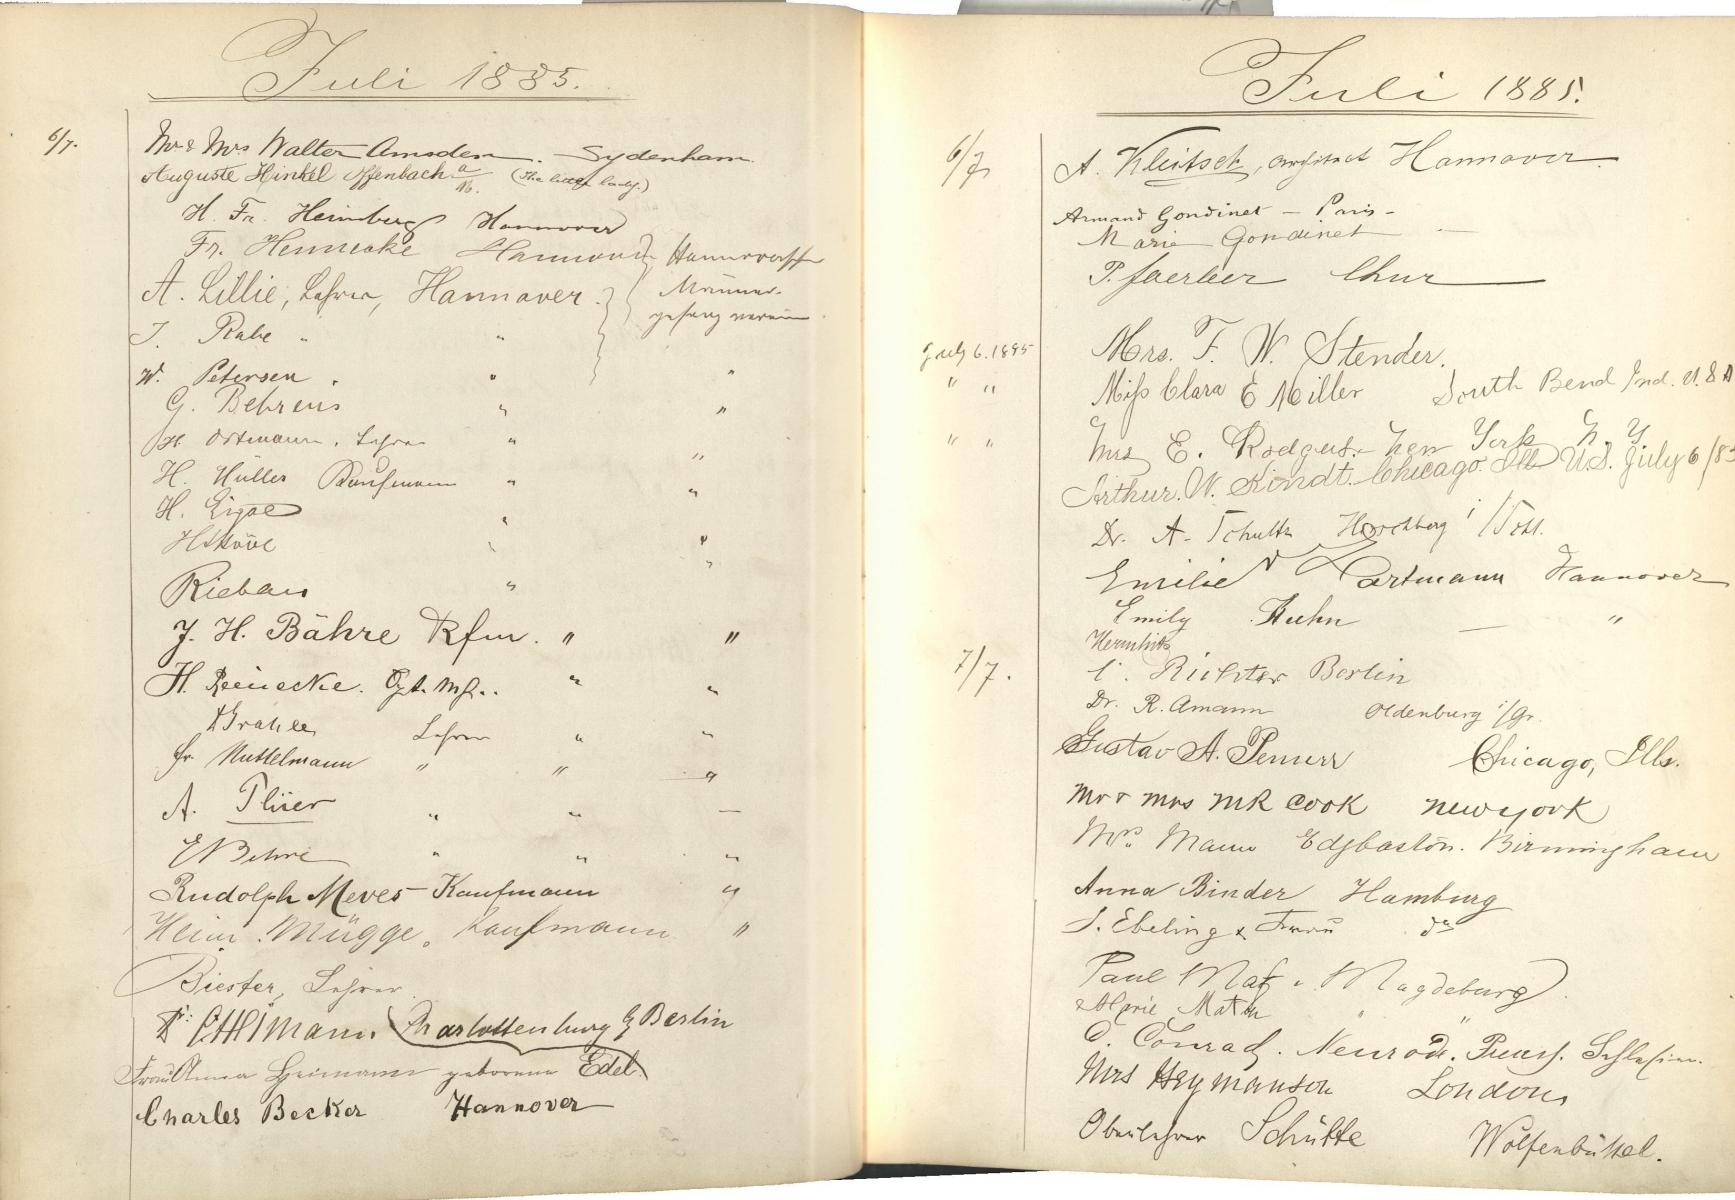 Juli 1885.
6/7. Mr & Mrs Walter Amsden. Sydenham
Auguste Hinkel Offenbach a/M. (The little lady.)
H. Fr. Heimberg Hannover
Fr. Hennecke Hannover Hannoversch
A. Lillie, Lehrer, Hannover. Männer-
gesangverein
J. Rabe " "
W. Petersen . " "
G. Behrens " "
H. Ortmann, Lehrer " "
H. Müller Kaufmann " "
H. " "
" "
Riebau "
J. H. Bähre Kfm. " "
H. Reinecke. " "
Lehrer " "
Fr. Nuttelmann " " "
A. Plüer " " —
" " "
Rudolph Meves Kaufmann "
Heinr. Mügge, Kaufmann "
Biester, Lehrer
Charlottenburg Berlin
Frau Anna Heimann geborene Edel.
Charles Becker Hannover
Juli 1885.
6/7 A. Kleitsch, Architect Hannover.
Armand Gondinet — Paris -
Marie Gondinet —
P. Chur
July 6. 1885 Mrs. F. W. Stender.
" " Miss Clara E Miller South Bend Ind. U.S A
" " Mrs E. Rodgers. New York N Y
Arthur. W. Kindt. Chicago. Ill U.S. July 6/85
Dr. A. Schultz
Emilie Hartmann Hannover
Emily Kuhn — "
7/7. C. Richter Berlin
Dr. R. Amann Oldenburg i/Gr.
Gustav A. Chicago, Ills.
Mr & Mrs MR Cook New York
Mrs. Mann Edgbaston. Birmingham
Anna Binder Hamburg
J. Ebeling & Frau do
Paul Magdeburg
& Marie " "
C. Conrad. Neurode. Preuss. Schlesien.
Mrs Heymanson London
Oberlehrer Schütte Wolfenbüttel.